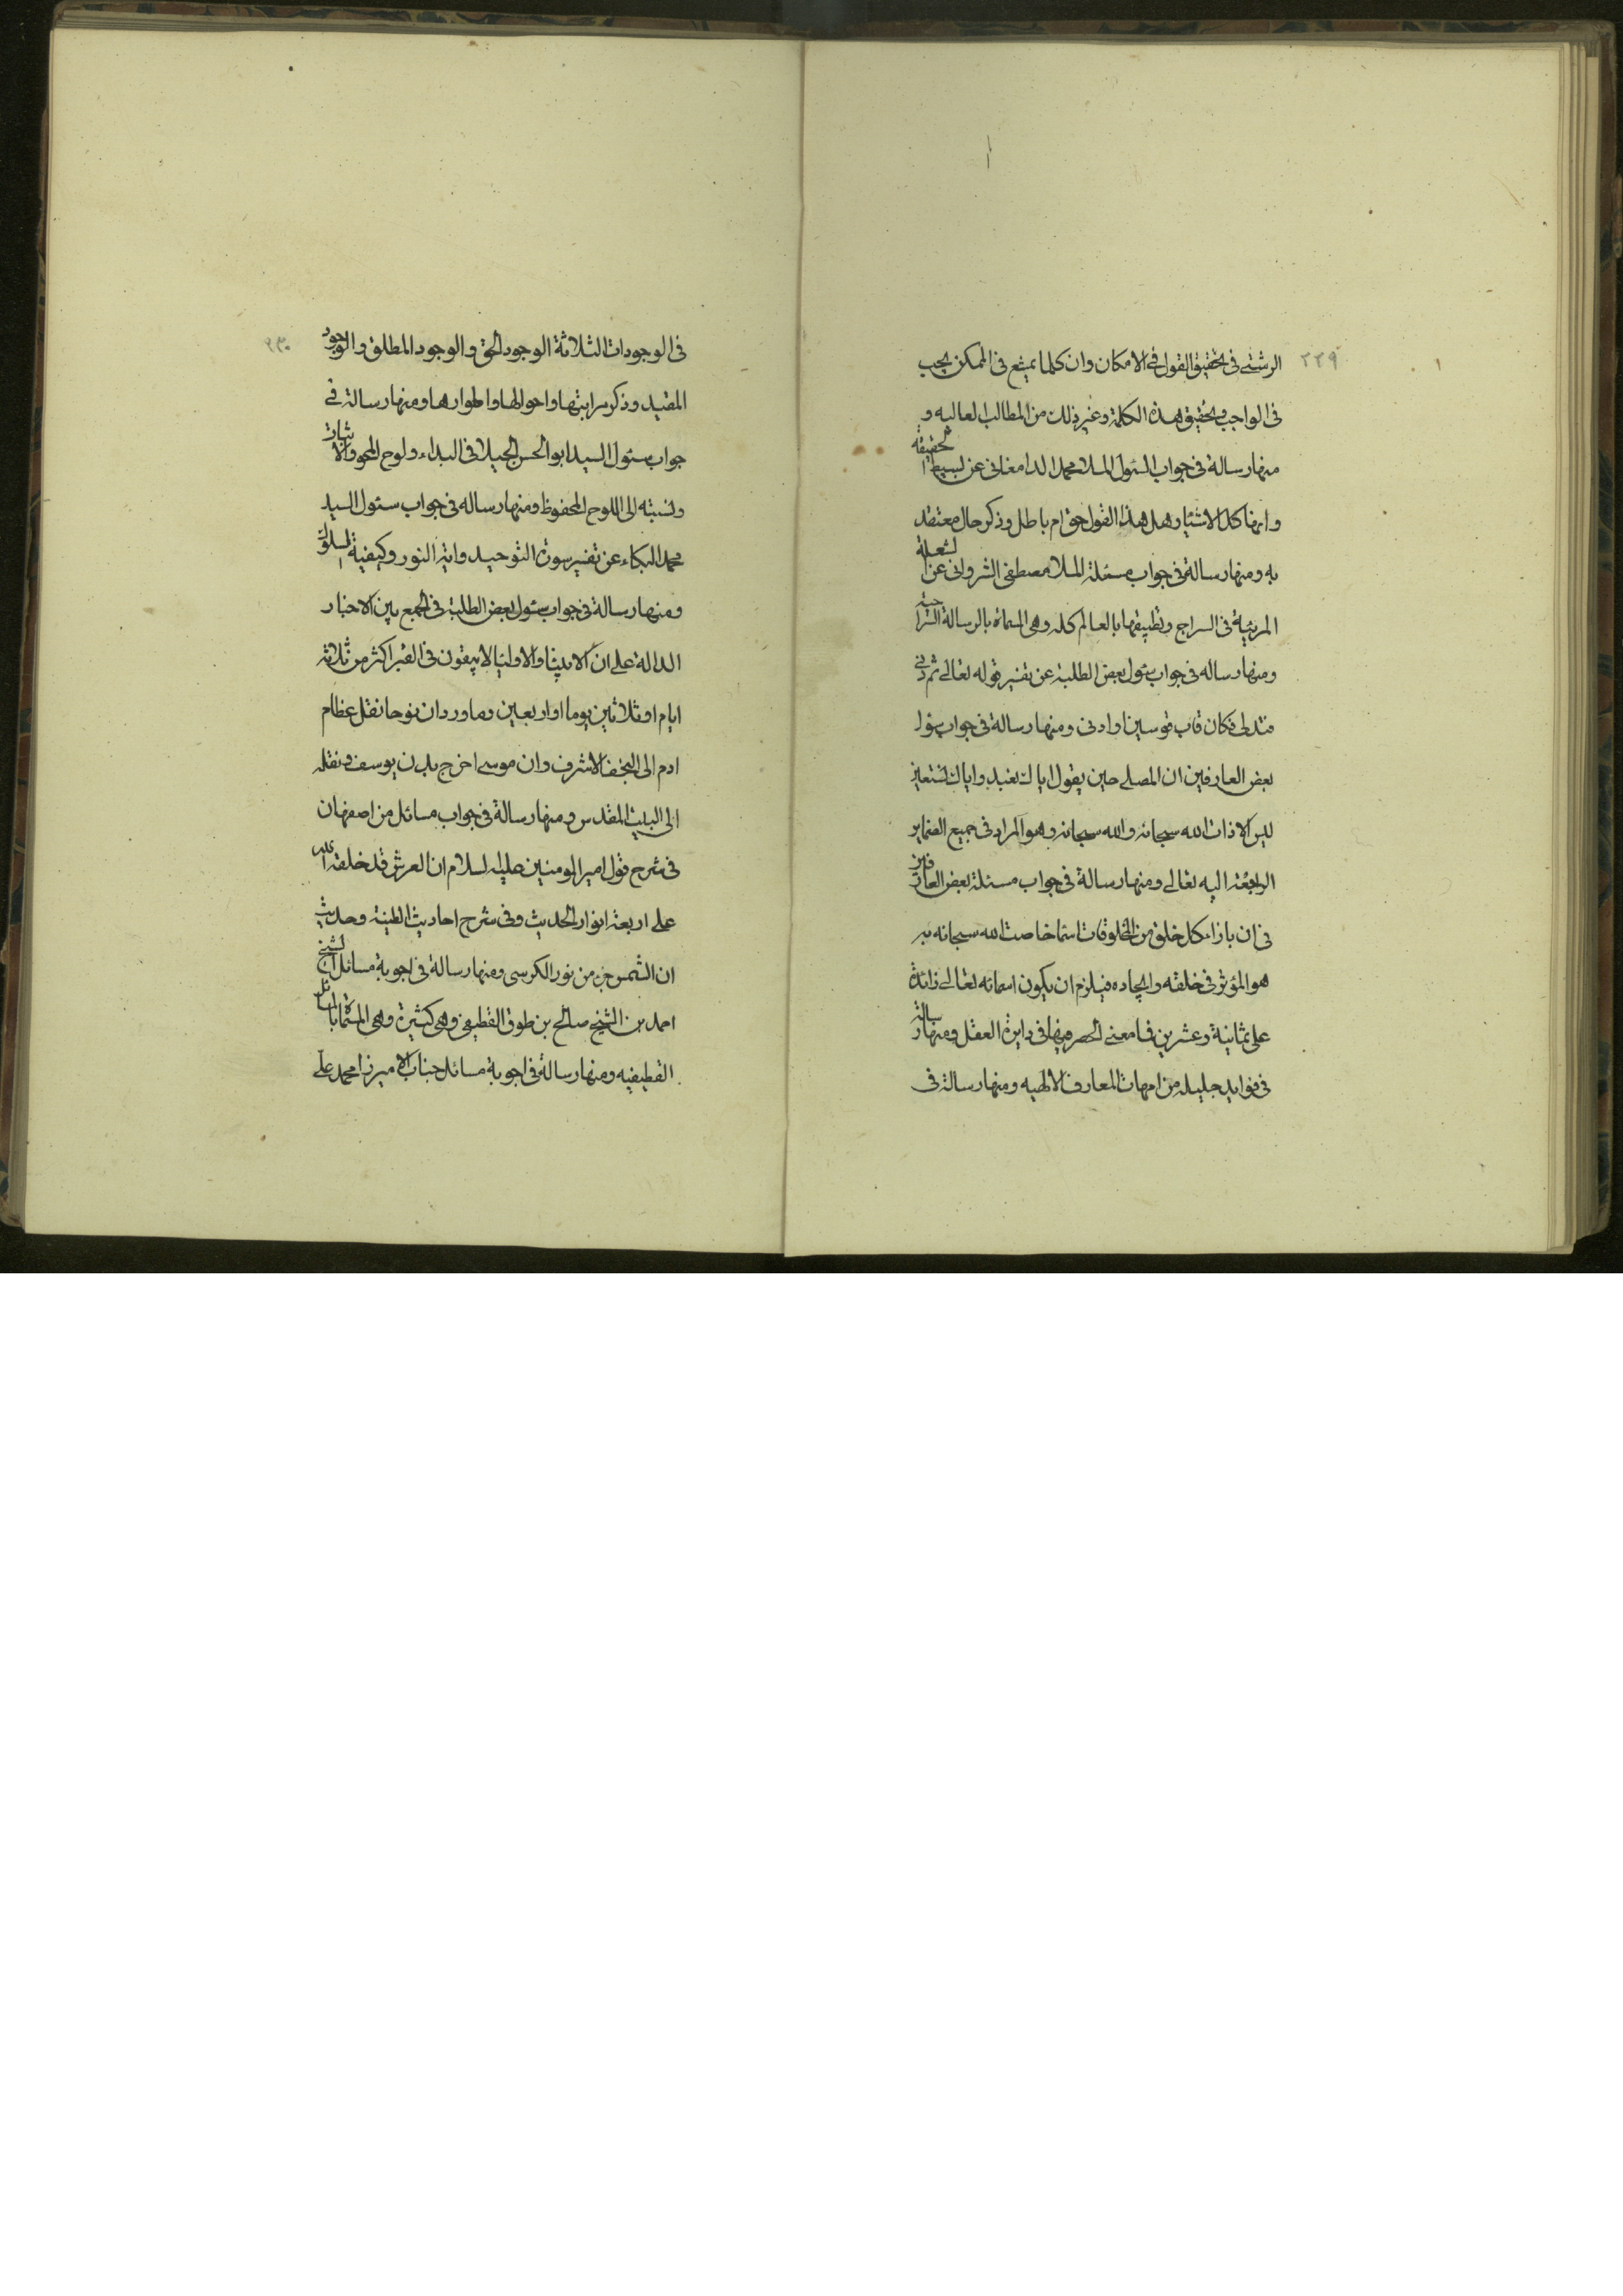 ٢٢٩
الرشتي في تحقيق القول في الامكان وان كلما يمتنع في الممكن يجب
في الواجب وتحقيق هذه الكلمة وغير ذلك من المطالب العاليه و
منها رسالة في جواب السئول الملا محمد الدامغاني عن بسيط الحقيقة
وانها كل الاشياء هل هذا القول حق ام باطل وذكر حال معتقد
به ومنها رسالة في جواب مسئلة الملا مصطفى الشرواني عن الشعلة
المرئية في السراج وتطبيقها بالعالم كله وهي المسماة بالرسالة السراجية
ومنها رساله في جواب سئول بعض الطلبة عن تفسير قوله تعالى ثم دنى
فتدلى فكان قاب قوسين او ادنى ومنها رسالة في جواب سئول
بعض العارفين ان المصلي حين يقول اياك نعبد واياك نستعين
ليس الا ذات الله سبحانه والله سبحانه وهو المراد في جميع الضماير
الراجعة اليه تعالى ومنها رسالة في جواب مسئلة بعض العارفين
في ان بازاء كل خلق من المخلوقات اسما خاصت الله سبحانه به
هو المؤثر في خلقه وايجاده فيلزم ان يكون اسمائه تعالى زائدة
على ثمانية وعشرين فما معنى الحصر فيها في دايرة العقل ومنها رسالة
في فوايد جليله من امهات المعارف الالهيه ومنها رسالة في
٢٣٠
في الوجودات الثلاثة الوجود الحق والوجود المطلق والوجود
المقيد وذكر مراتبها واحوالها واطوارها ومنها رسالة في
جواب سئول السيد ابو الحسن الجيلاني البداء ولوح المحو والاثبات
ونسبته الى اللوح المحفوظ ومنها رساله في جواب سئول السيد
محمد البكاء عن تفسير سورة التوحيد واية النور وكيفية السلوك
ومنها رسالة في جواب سئول بعض الطلبة في الجمع بين الاخبار
الدالة على ان الانبيا والاوليا لا يبقون في القبر اكثر من ثلاثة
ايام او ثلاثين يوما او اربعين وما ورد ان نوحا نقل عظام
ادم الى النجف الاشرف وان موسى اخرج بدن يوسف ونقله
الى البيت المقدس ومنها رسالة في جواب مسائل من اصفهان
في شرح قول امير المومنين عليه السلام ان العرش قد خلقه الله
على اربعة انوار الحديث وفي شرح احاديث الطينة وحديث
ان الشمس جزء من نور الكرسي ومنها رسالة في اجوبة مسائل الشيخ
احمد بن الشيخ صالح بن طوق القطيفي وهي كثيرة وهي المسماة بالمسائل
القطيفيه ومنها رسالة في اجوبة مسائل جناب الاميرزا محمد علي